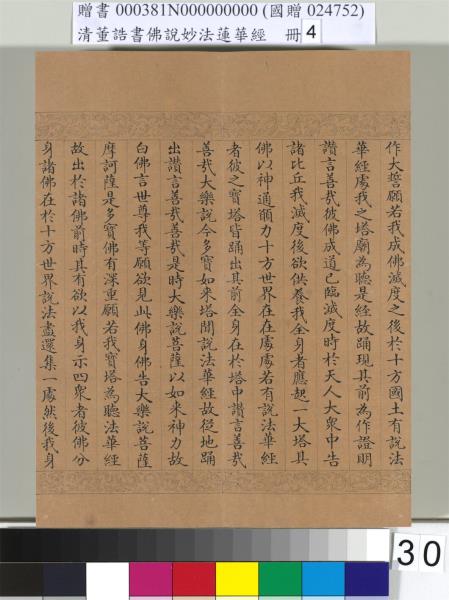 贈書 000381N000000000 (國贈 024752)
清董誥書佛說妙法蓮華經 冊4
作大誓願若我成佛滅度之後於十方國土有說法
華經處我之塔廟為聽是經故踊現其前為作證明
讚言善哉彼佛成道已臨滅度時於天人大眾中告
諸比丘我滅度後欲供養我全身者應起一大塔其
佛以神通願力十方世界在在處處若有說法華經
者彼之寶塔皆踊出其前全身在於塔中讚言善哉
善哉大樂說今多寶如來塔聞說法華經故從地踊
出讚言善哉善哉是時大樂說菩薩以如來神力故
白佛言世尊我等願欲見此佛身佛告大樂說菩薩
摩訶薩是多寶佛有深重願若我寶塔為聽法華經
故出於諸佛前時其有欲以我身示四眾者彼佛分
身諸佛在於十方世界說法盡還集一處然後我身
30